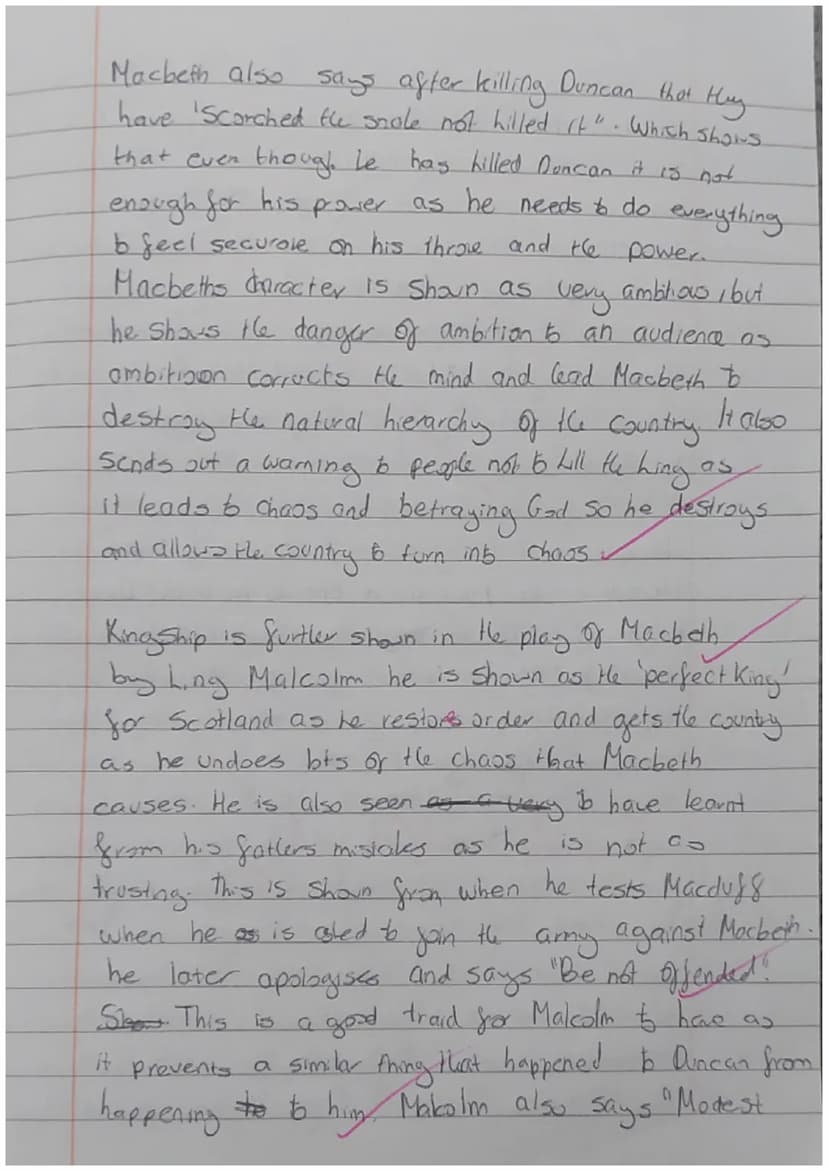 Macbeth also says after killing Duncan that they
have 'Scorched the snake not killed it". Which shows
that even though he has killed Duncan it is not
enough for his power as he needs to do everything
to feel securole on his throne and the power.
Macbeths character is shown as very ambitious, but
he shows the danger of ambition to an audience as
ambitioon corructs the mind and lead Macbeth to
destroy the natural hierarchy of the country. It also
sends out a warning to people not to kill the king as
it leads to chaos and betraying God so he destroys
and allows the country to turn into chaos
Kingship is further shown in the play of Macbeth
by king Malcolm he is shown as the 'perfect King'
for Scotland as he restores order and gets the country
as he undoes lots of the chaos that Macbeth
causes. He is also seen as a very to have learnt
from his fathers mistakes as he is not as
trusting. This is shown from when he tests Macduff
when he as is asked to join the army against Macbeth.
he later apologises and says "Be not offended".
This is a good traid for Malcolm to hae as
it prevents a similar thing that happened to Duncan from
happening to to him. Malcolm also says "Modest